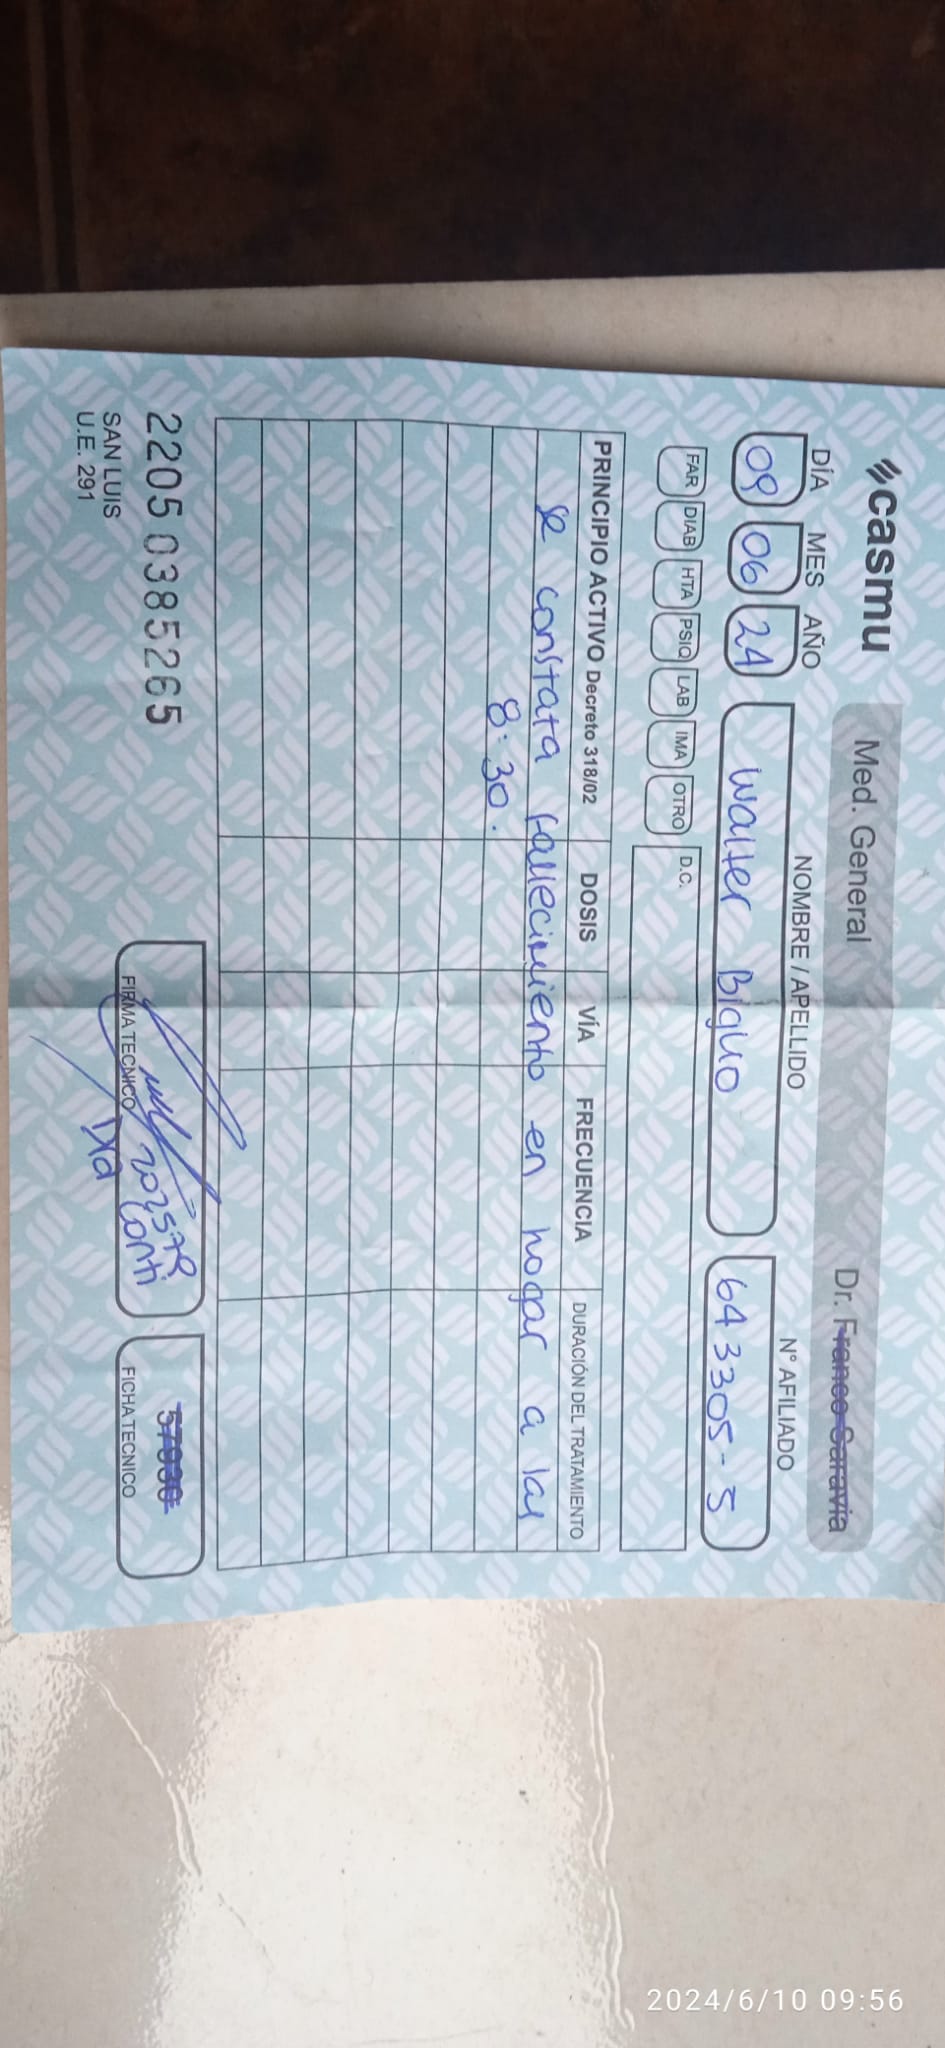 casmu
Med. General
Dr. Franco Saravia
DÍA MES AÑO
NOMBRE / APELLIDO
N° AFILIADO
09 06 24
Walter Biglio
643305-5
FAR DIAB HTA PSIQ LAB IMA OTRO
D.C.
PRINCIPIO ACTIVO Decreto 318/02 DOSIS VÍA FRECUENCIA DURACIÓN DEL TRATAMIENTO
se constata fallecimiento en hogar a las
8:30.
2205 0385265
SAN LUIS
U.E. 291
202579
Dra Conti
FIRMA TECNICO
57930
FICHA TECNICO
2024/6/10 09:56